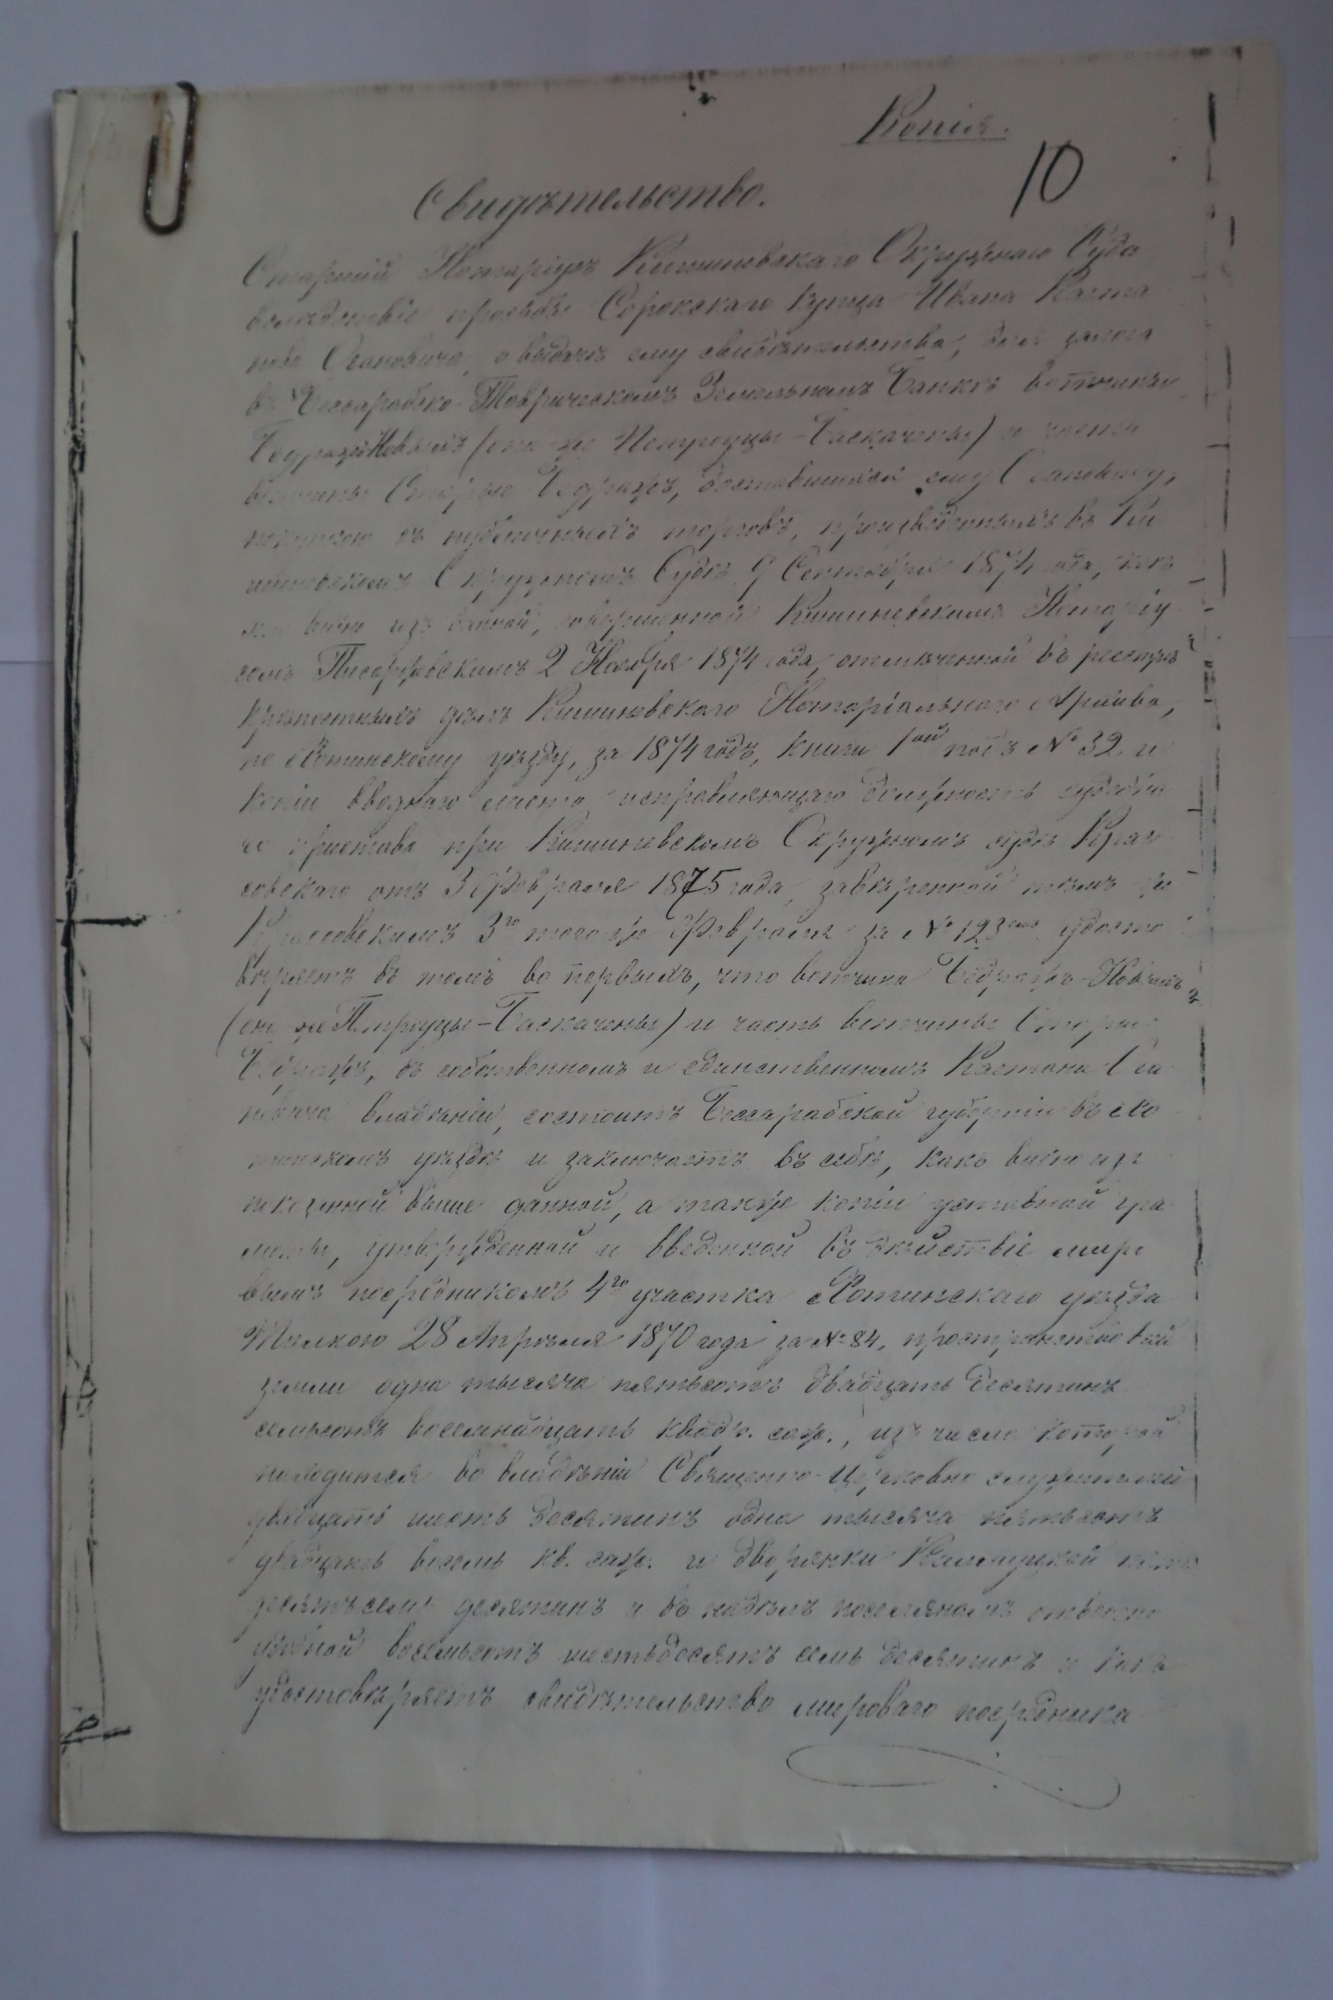 Копія.
10
Свидѣтельство.
Старшій Нотаріусъ Кишиневскаго Окружнаго Суда
вслѣдствіе просьбы Сорокскаго купца Ивана Каэта
нова Остановича, о выдачѣ ему свидѣтельства, для залога
въ Бессарабско-Таврическомъ Земельномъ Банкѣ вотчины
Бедражи Новыхъ (она же Петруцы-Баскачены) и части
вотчины Старые Бедражъ, доставшихся ему
покупкою съ публичныхъ торговъ, произведенныхъ въ Ки
шиневскомъ Окружномъ Судѣ 9 Сентября 1874 года, какъ
видно изъ данной, совершенной Кишиневскимъ Нотаріу
сомъ 2 Ноября 1874 года, отмѣченной въ реестрѣ
крѣпостныхъ дѣлъ Кишиневскаго Нотаріальнаго Архива,
по Хотинскому уѣзду, за 1874 годъ, книги 1ой подъ № 32 и
копіи вводнаго листа, исправляющаго должность судебна
го пристава при Кишиневскомъ Окружномъ судѣ Крас
совскаго отъ 3 Февраля 1875 года, завѣренной тѣмъ же
Крассовскимъ 3го того же Февраля за № 123 удосто
вѣряетъ въ томъ во первыхъ, что вотчина Бедражъ-Новыхъ
(она же Петруцы-Баскачены) и часть вотчины Стары
Бедражъ, въ собственномъ и единственномъ Каэтана
владѣніи, состоитъ Бессарабской губерніи въ Хо
тинскомъ уѣздѣ и заключаетъ въ себѣ, какъ видно изъ
показанной выше данной, а также копіи уставной гра
моты, утвержденной и введенной въ дѣйствіе миро
вымъ посредникомъ 4го участка Хотинскаго уѣзда
28 Апрѣля 1870 года за № 84, пространства всей
земли одна тысяча пятьсотъ двадцать десятинъ
семьсотъ восемнадцать квадр. саж., изъ числа которой
находится во владѣніи Священно-Церковно служителей
двадцать шесть десятинъ одна тысяча пятьсотъ
двадцать восемь кв. саж. и дворянки
десять семь десятинъ и въ надѣлъ поселянамъ отведено
удобной восемьсотъ шестьдесятъ семь десятинъ и какъ
удостовѣряетъ свидѣтельство мироваго посредника